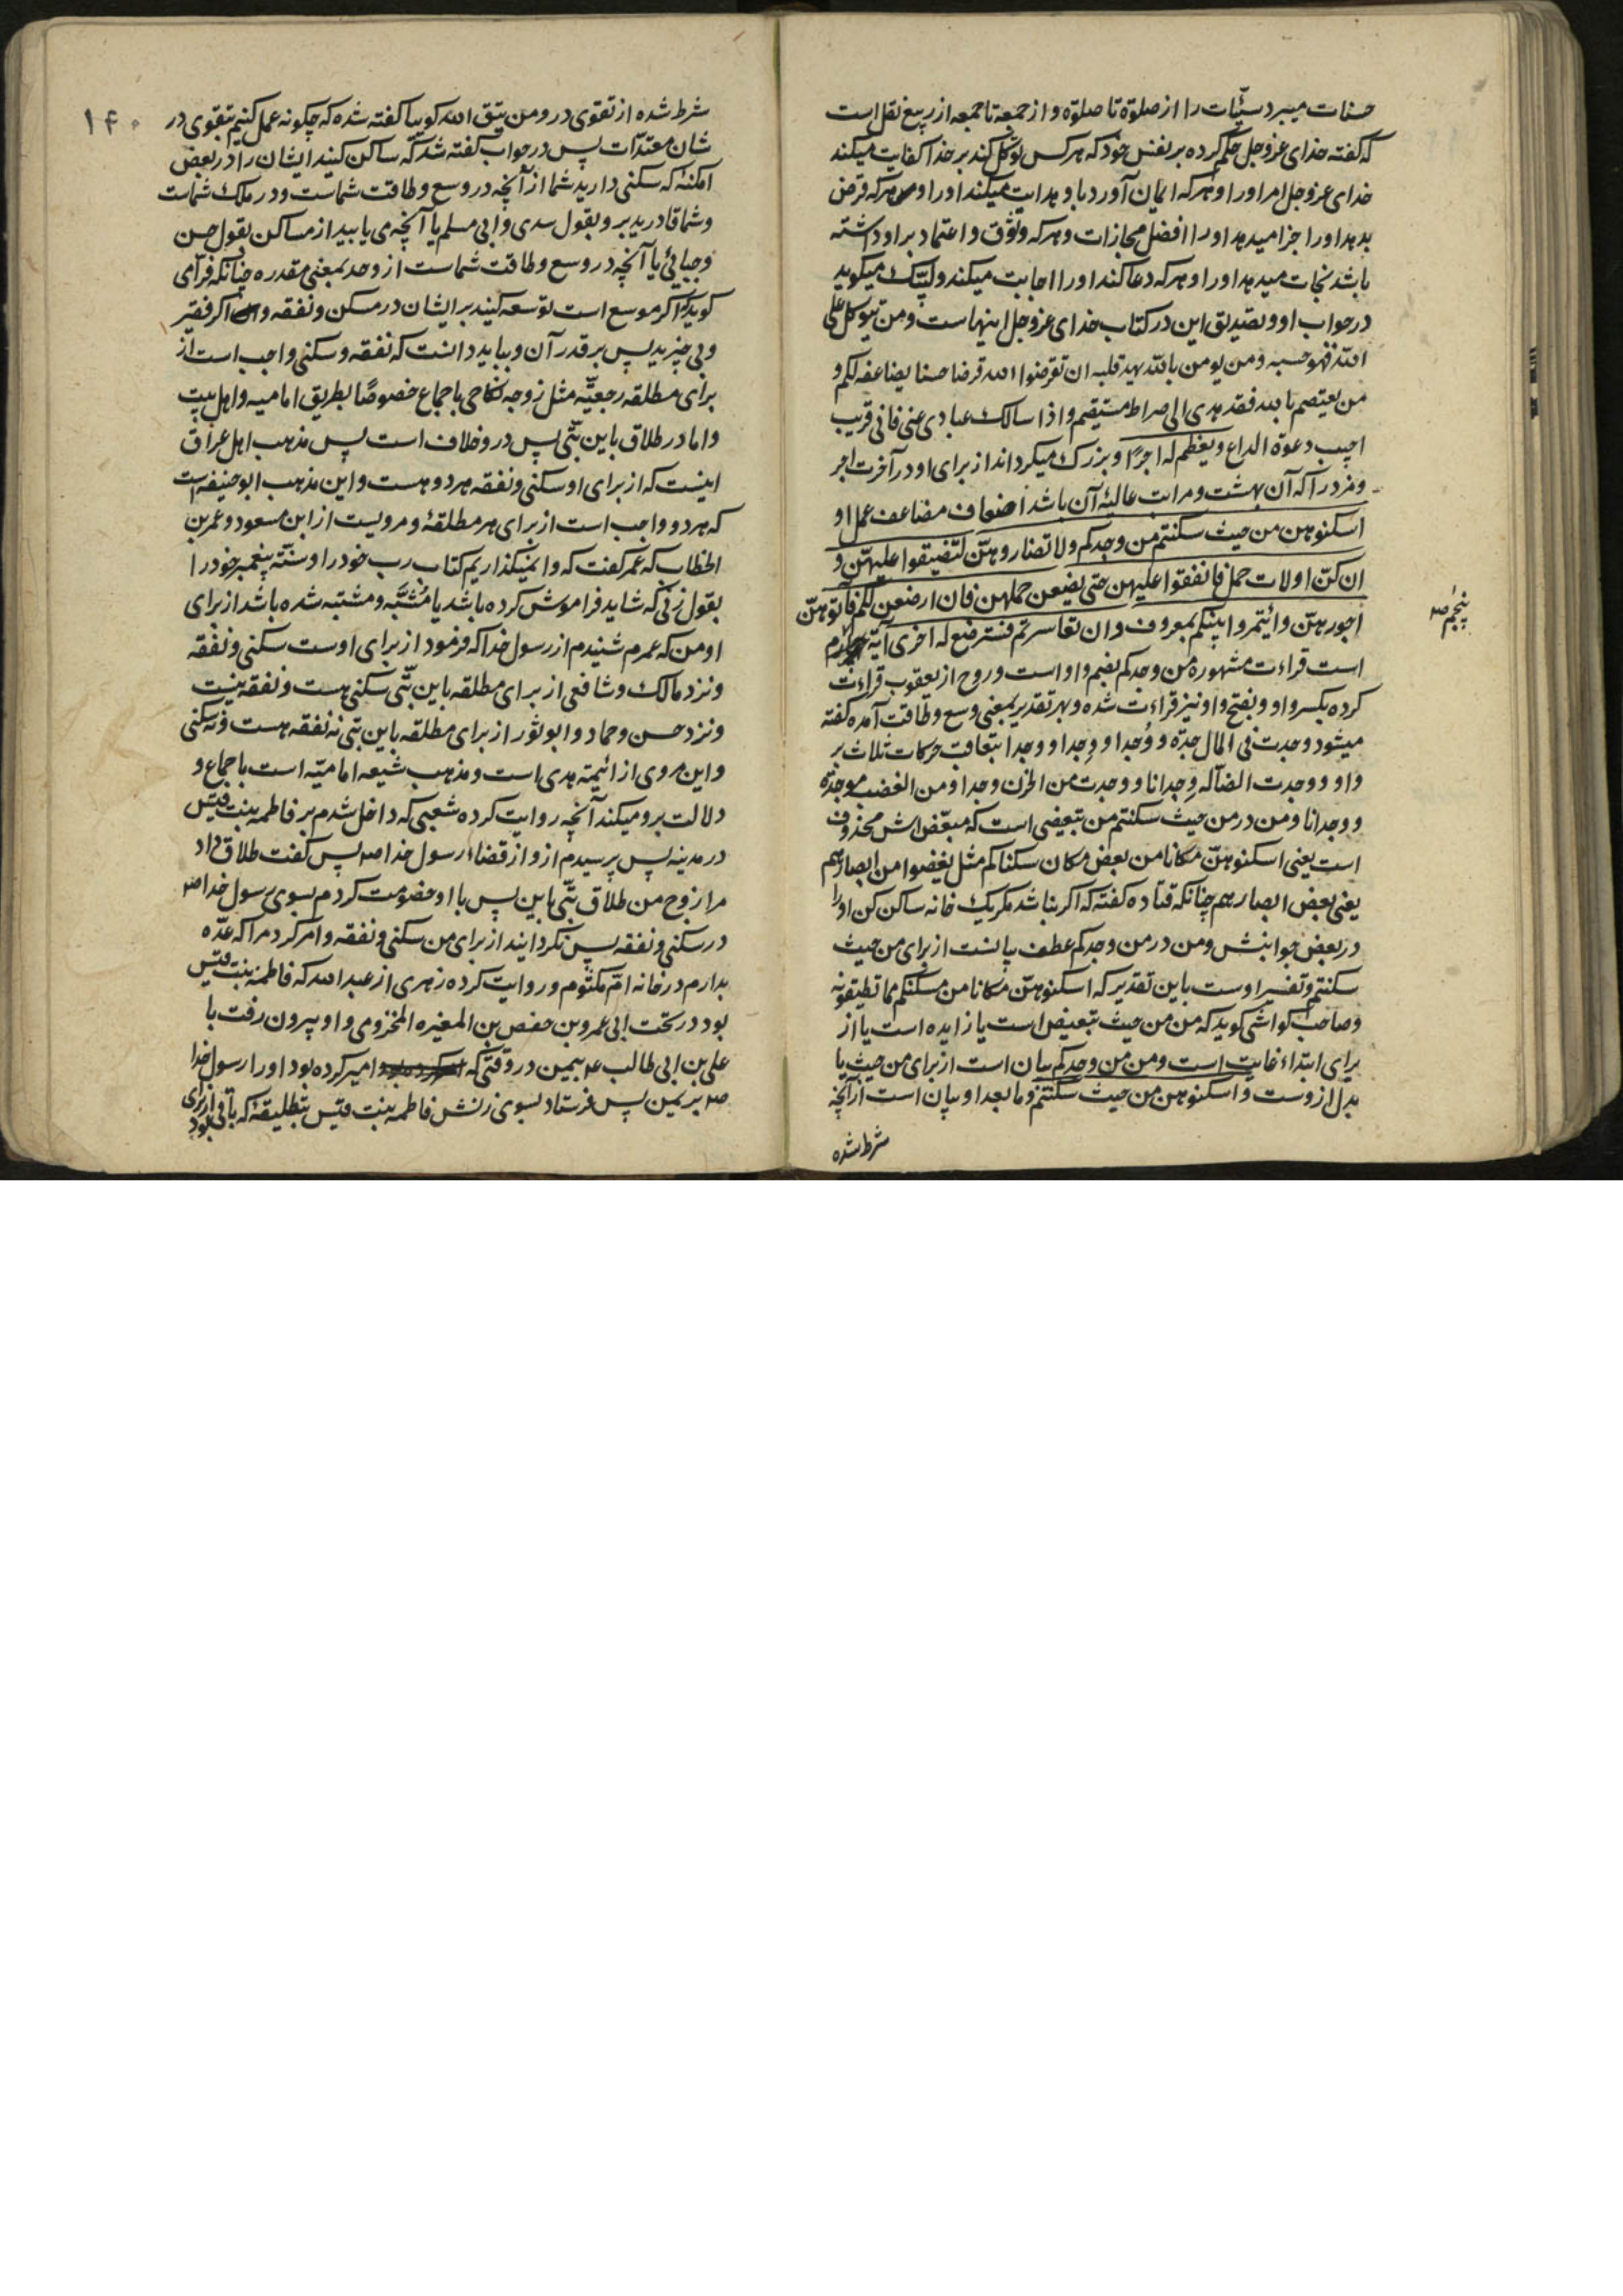 حسنات میبرد سیّئات را از صلوة تا صلوة و از جمعه تا جمعه از ربیع نقل است
که گفته خدای عز وجل حکم کرده بر نفس خود که هر کس توکل کند بر خدا کفایت میکند
خدای عز وجل امر او را و هر که ایمان آورد باو هدایت میکند او را و هر که قرض
بدهد او را جزا میدهد او را افضل مجازات و هر که وثوق و اعتماد بر او داشته
باشد نجات میدهد او را و هر که دعا کند او را اجابت میکند و لبیّک میگوید
در جواب او و تصدیق این در کتاب خدای عز وجل اینهاست ومن یتوکل علی
الله فهو حسبه ومن یومن بالله یهد قلبه ان تقرضوا الله قرضا حسنا یضاعفه لکم و
من یعتصم بالله فقد هدی الی صراط مستقیم واذا سالک عبادی عنی فانی قریب
اجیب دعوة الداع ویعظم له اجرًا و بزرک میکرداند از برای او در آخرت اجر
و مزد را که آن بهشت و مراتب عالیهٔ آن باشد اضعاف مضاعف عمل او
اسکنوهن من حیث سکنتم من وجدکم ولا تضاروهنّ لتضیقوا علیهنّ و
ان کنّ اولات حمل فانفقوا علیهن حتی یضعن حملهن فان ارضعن لکم فآتوهنّ
اجورهنّ وائتمروا بینکم بمعروف وان تعاسرتم فسترضع له اخری آیة
پنجم ص
است قراءت مشهوره من وجدکم بضم واو است و روح از یعقوب قراءت
کرده بکسر واو و بفتح واو نیز قراءت شده و بهر تقدیر بمعنی وسع و طاقت آمده گفته
میشود وجدت فی المال جدّه و وُجدا و وِجدا و وجدا بتعاقب حرکات ثلاث بر
واو و وجدت الضآله وِجدانا و وجدت من الحزن وجدا و من الغضب موجدة
و وجدانا و من در من حیث سکنتم من تبعیضی است که مبعّض اش محذوف
است یعنی اسکنوهنّ مکانا من بعض مکان سکناکم مثل یغضوا من ابصارهم
یعنی بعض ابصارهم چنانکه قتاده گفته که اکر نباشد مکر یک خانه ساکن کن او را
در بعض جوانبش و من در من وجدکم عطف بیانست از برای من حیث
سکنتم و تفسیر اوست باین تقدیر که اسکنوهنّ مکانا من مسکنکم مما تطیقونه
و صاحب کواشی گوید که من من حیث تبعیض است یا زایده است یا از
برای ابتداء غایت است و من من وجدکم بیان است از برای من حیث یا
بدل ازوست و اسکنوهن من حیث سکنتم و ما بعد او بیان است آز آنچه
شرط شده
۱۴۰
شرط شده از تقوی در ومن یتق الله گویا گفته شده که چگونه عمل کنیم بتقوی در
شان معتدّات پس در جواب گفته شد که ساکن کنید ایشان را در بعض
امکنهٔ که سکنی دارید شما از آنچه در وسع و طاقت شماست و در ملک شماست
و شما قادرید بر و بقول سدی و ابی مسلم یا آنچه می یابید از مساکن بقول حسن
و جبائی یا آنچه در وسع و طاقت شماست از وجد بمعنی مقدره چنانکه فرآمی
گوید که اکر موسع است توسعه کنید بر ایشان در مسکن و نفقه و اکر فقیر
و بی چیزید پس بر قدر آن و بباید دانست که نفقه و سکنی واجب است از
برای مطلقه رجعیّه مثل زوجه نکاحی باجماع خصوصًا بطریق امامیه و اهل بیت
و اما در طلاق باین بتّی پس درو خلاف است پس مذهب اهل عراق
اینست که از برای او سکنی و نفقه هر دو هست و این مذهب ابو حنیفه است
که هر دو واجب است از برای هر مطلقهٔ و مرویست از ابن مسعود و عمر بن
الخطاب که عمر گفت که وا نمیگذاریم کتاب رب خود را و سنّة پیغمبر خود را
بقول زنی که شاید فراموش کرده باشد یا مُشبَّه و مشتبه شده باشد از برای
او من که عمرم شنیدم از رسول خدا که فرمود از برای اوست سکنی و نفقه
و نزد مالک و شافعی از برای مطلقه باین بتّی سکنی هست و نفقه نیست
و نزد حسن و حماد و ابو ثور از برای مطلقه باین بتی نه نفقه هست و نه سکنی
و این مروی از ائیمة هدی است و مذهب شیعه امامیّه است باجماع و
دلالت برو میکند آنچه روایت کرده شعبی که داخل شدم بر فاطمه بنت قیس
در مدینه پس پرسیدم ازو از قضاء رسول خدا ص پس گفت طلاق داد
مرا زوج من طلاق بتّی باین پس با او خصومت کردم بسوی رسول خدا ص
در سکنی و نفقه پس نگردانید از برای من سکنی و نفقه و امر کرد مرا که عدّه
بدارم در خانه امّ مکتوم و روایت کرده زهری از عبد الله که فاطمه بنت قیس
بود در تحت ابی عمرو بن حفص بن المغیره المخزومی و او بیرون رفت با
علی بن ابی طالب ع بیمین در وقتی که امیر کرده بود او را رسول خدا
ص بر یمن پس فرستاد بسوی زنش فاطمه بنت قیس بتطلیقهٔ که باقی بود از برای